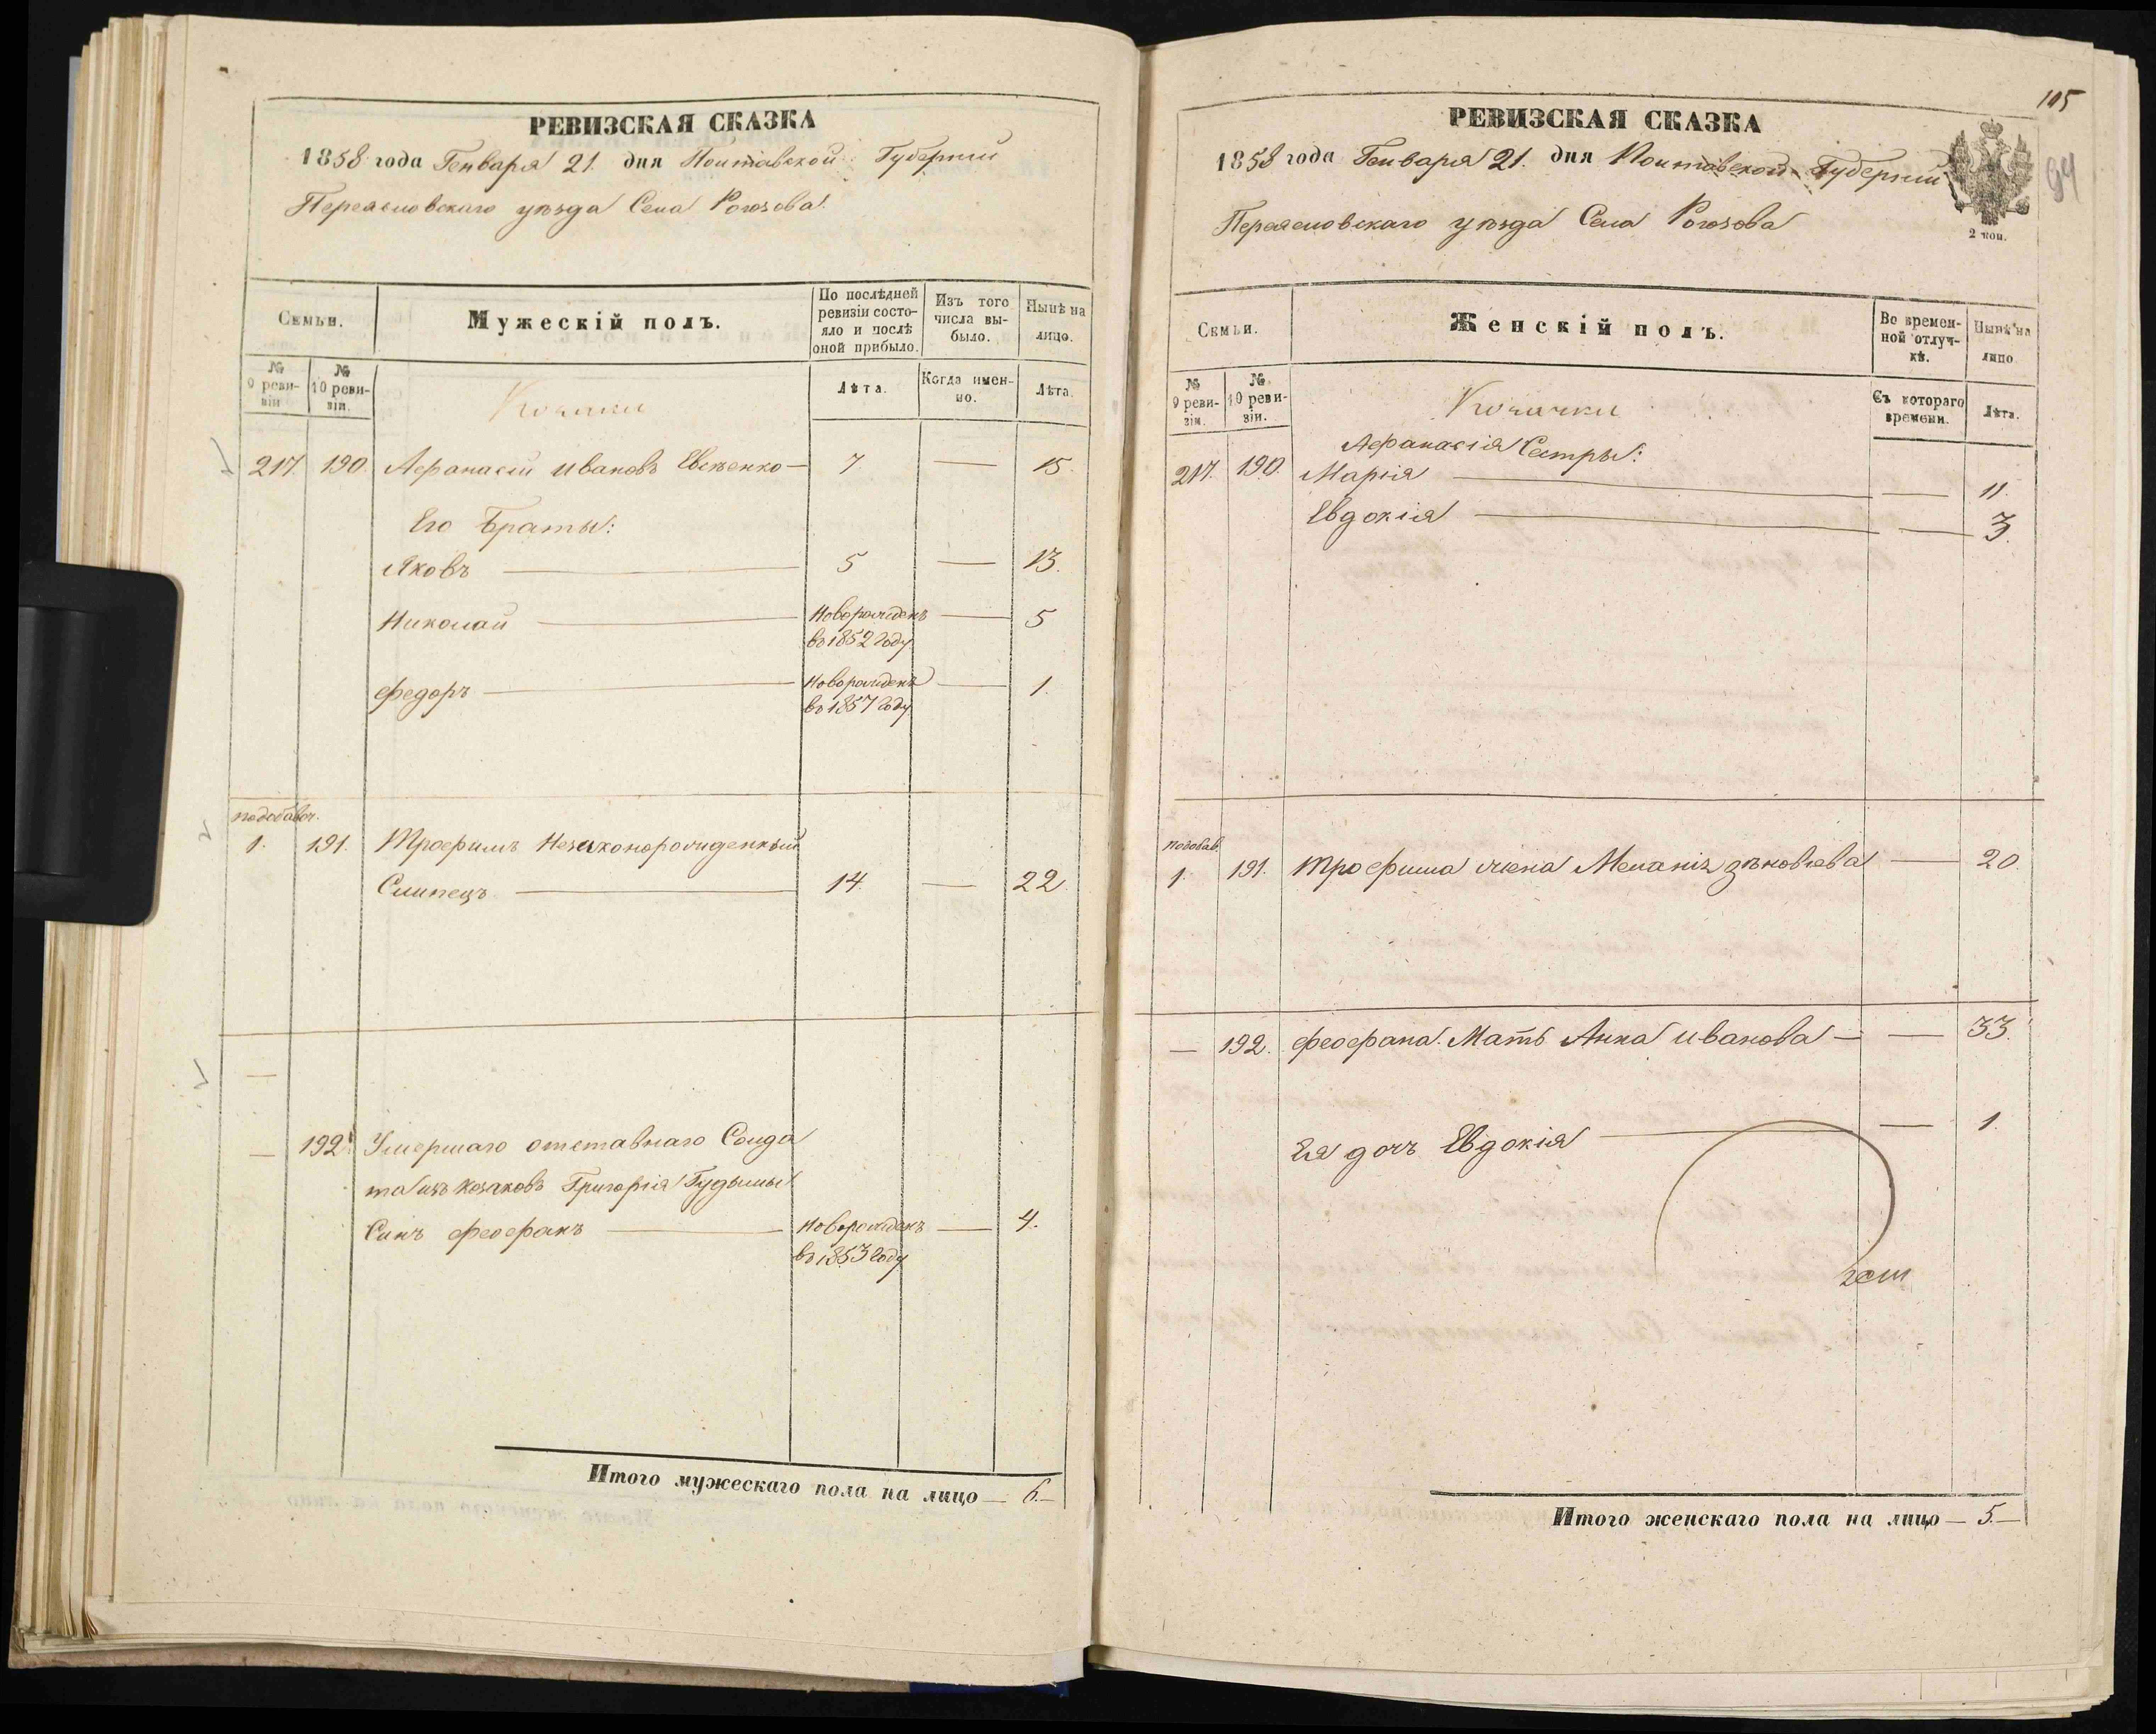 РЕВИЗСКАЯ СКАЗКА
1858 года Генваря 21. дня Полтавской Губерніи
Переяславскаго уѣзда Села Рогозова.
Семьи.
Мужескій полъ.
По послѣдней ревизіи состояло и послѣ оной прибыло.
Изъ того числа выбыло.
Нынѣ на лицо.
№ 9 ревизіи
№ 10 ревизіи.
Козаки
Лѣта.
Когда именно.
Лѣта.
217. 190. Афанасій Ивановъ Евсѣенко — 7 — 15.
Его Браты:
Яковъ — 5 — 13.
Николай — Новорожденъ — 5
во 1852 году
Федоръ — Новорожденъ — 1.
во 1857 году
подобавоч.
1. 191. Трофимъ Незаконорожденный
Слипецъ — 14 — 22.
—
— 192. Умершаго отставнаго Солда
та изъ козаковъ Григорія Гудымы
Синъ Феофанъ — Новорожденъ — 4.
во 1853 году
Итого мужескаго пола на лицо — 6. —
105
94
РЕВИЗСКАЯ СКАЗКА
1858 года Генваря 21. дня Полтавской Губерніи
Переяславскаго уѣзда Села Рогозова
2 коп.
Семьи.
Женскій полъ.
Во временной отлучкѣ.
Нынѣ на лицо
№ 9 ревизіи.
№ 10 ревизіи.
Козачки
Съ котораго времени.
Лѣта.
Афанасія Сестры:
217. 190. Марія — — 11.
Евдокія — — 3.
подобав.
1. 191. Трофима жена Меланія Зѣновіева — 20.
— 192. Феофана Мать Анна Иванова — — 33.
Ея дочь Евдокія — — 1.
Итого женскаго пола на лицо — 5. —